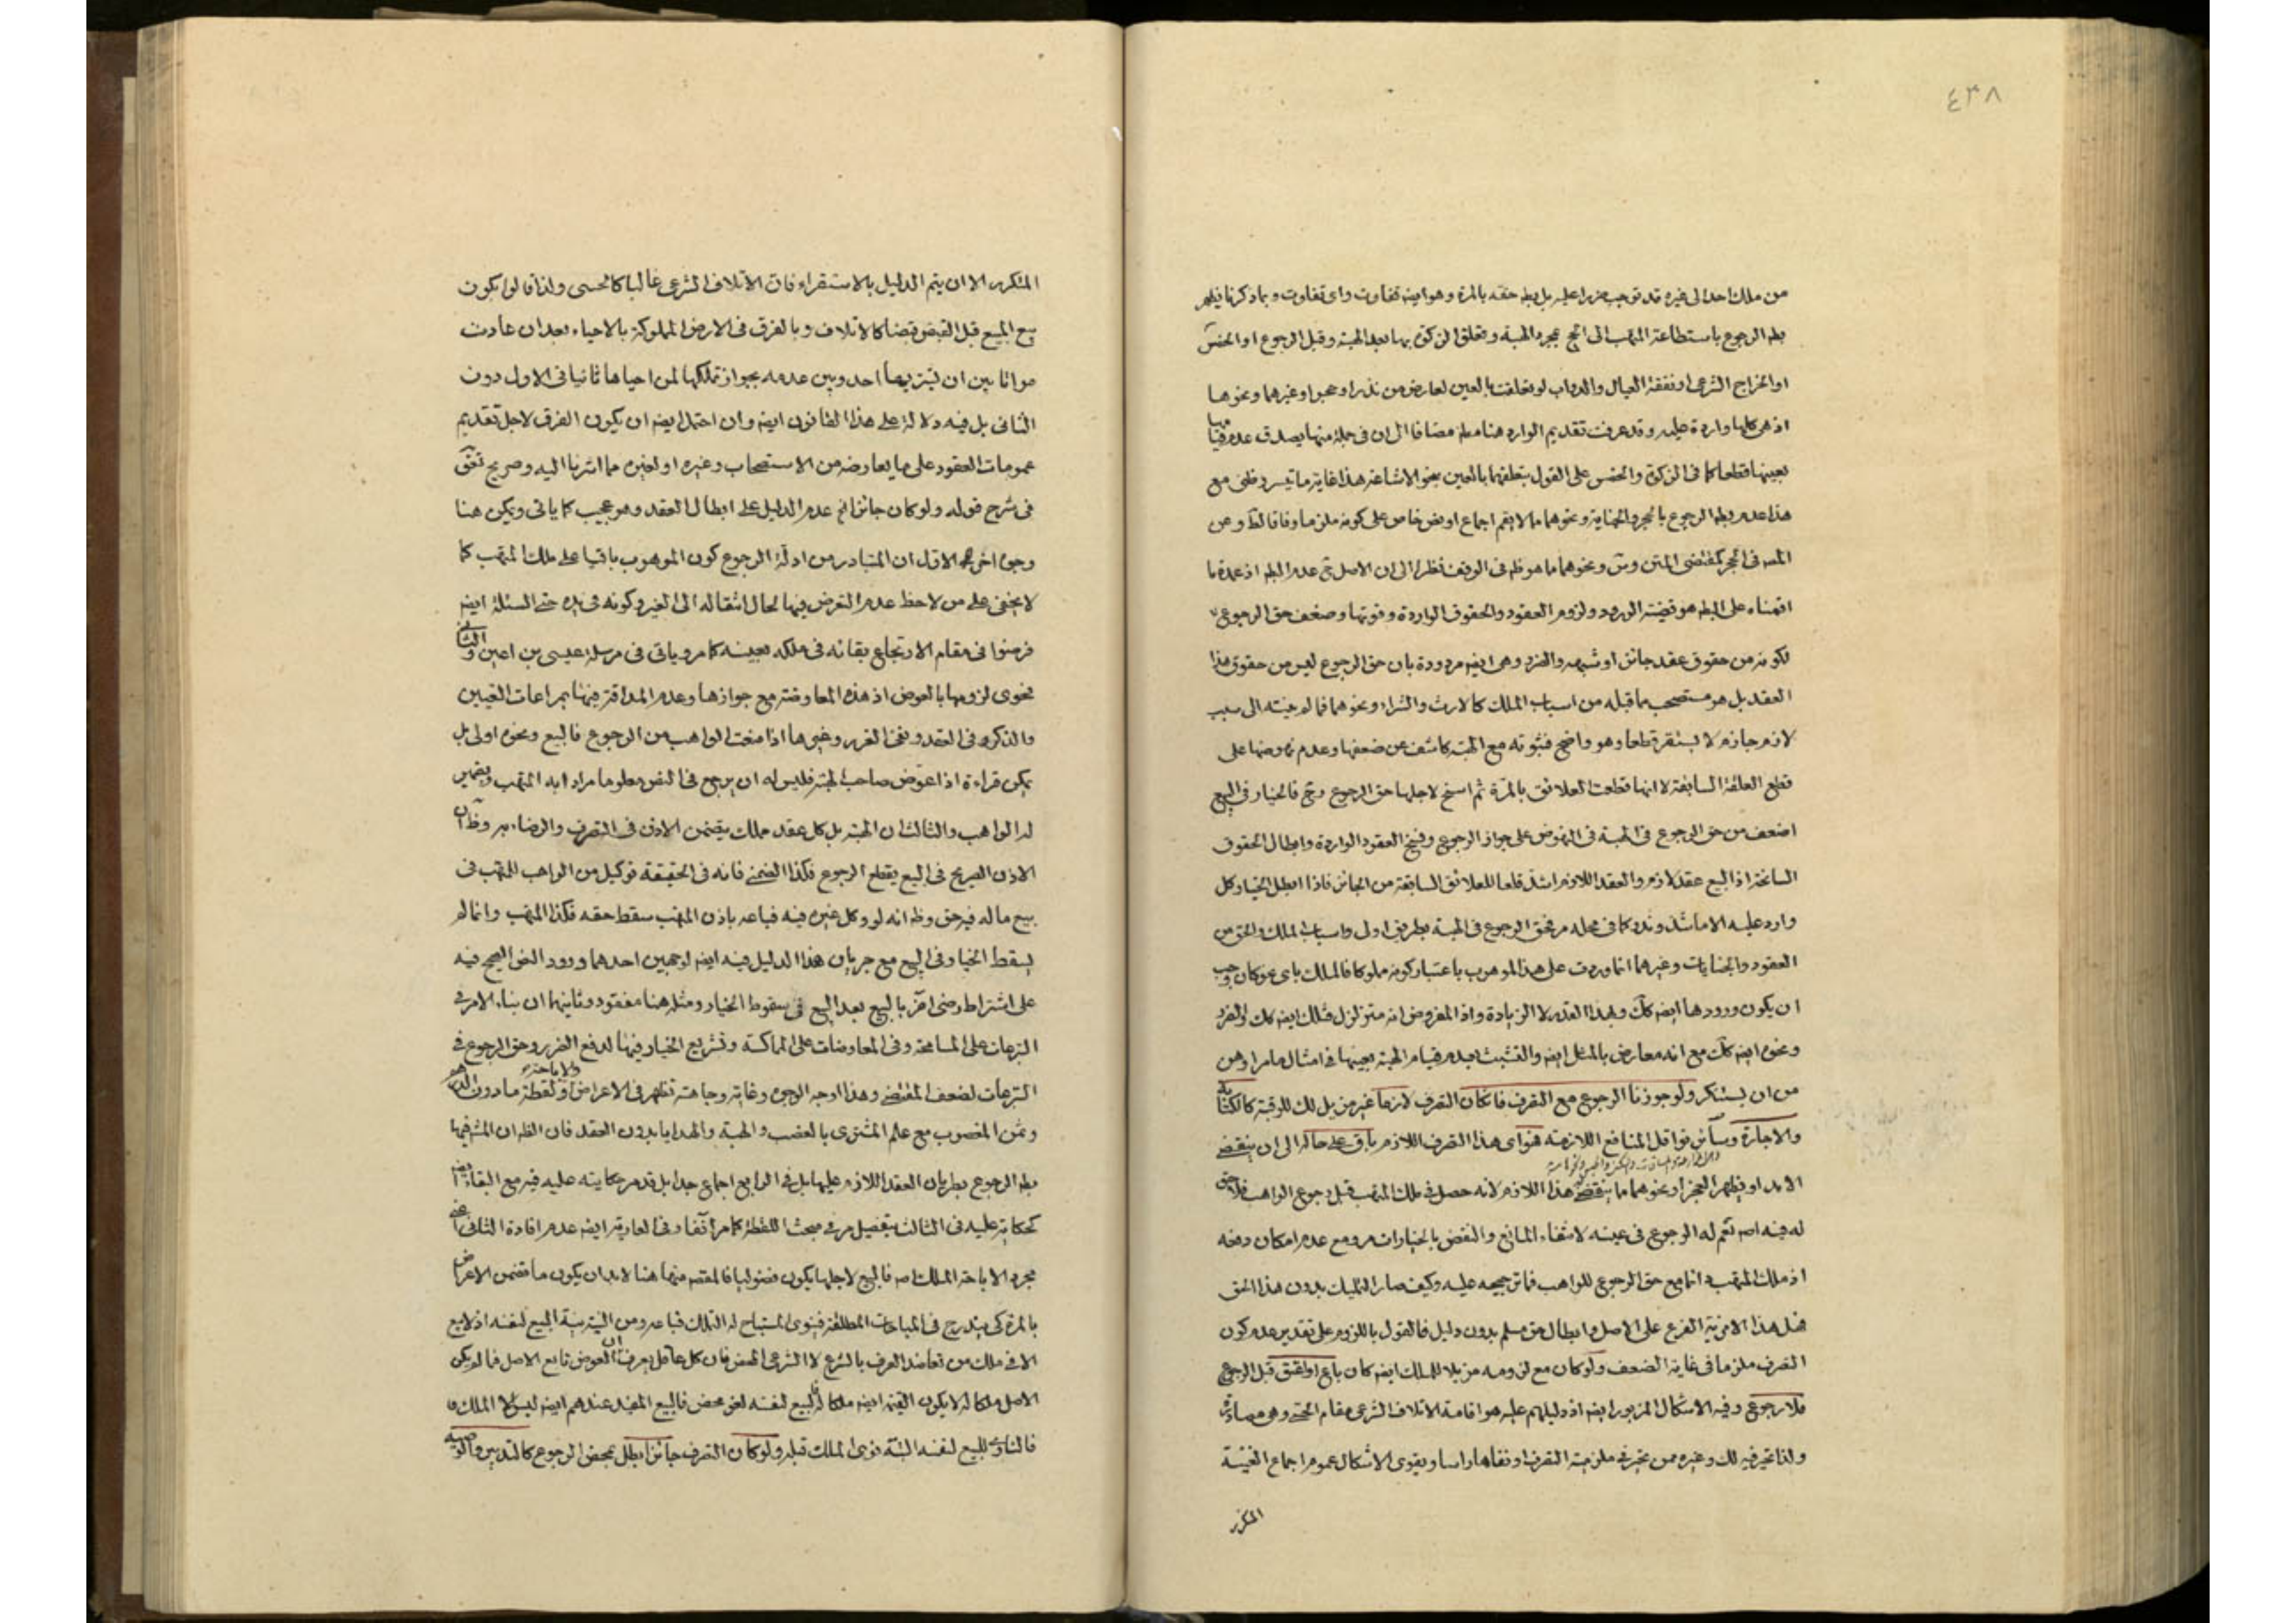 ٤٣٨
من ملك احد الى غيره قد توجب ضررا عليه بل بطل حقه بالمرة وهو ايضا تفاوت واى تفاوت وبما ذكرنا يظهر
بطه الرجوع باستطاعة المتهب الى الحج بمجرد الهبة وتعلق الزكوة بها بعد الهبة وقبل الرجوع او الخمس
او الخراج الشرعى او نفقة العيال والدواب لو تعلقت بالعين لعارض من نذر او حجر او غيرهما ونحوها
اذ هى كلها واردة عليه وقد عرفت تقديم الوارد هنا مضافا الى ان فى جملة منها يصدق عدم قيامها
بعينها قطعا كما فى الزكوة والخمس على القول بتعلقهما بالعين بنحو الاشاعة هذا غاية ما تيسر وفى مع
هذا عدم بطه الرجوع بالحجر والجناية ونحوهما مالا يقم اجماع او نص خاص على كونه ملزما وفاقا لظ وعن
المسه فى الحجر لمقتضى المتن وس ونحوهما ما هو ظه فى الوقف نظرا الى ان الاصل ح عدم البطه اذ عمدة ما
اقمناه على البطه هو قضية الورود ولزوم العقود والحقوق الواردة وقوتها وضعف حق الرجوع
لكونه من حقوق عقد جائز او شبهه والضرر وهى ايضه مردودة بان حق الرجوع ليس من حقوق هذا
العقد بل هو مستصحب ما قبله من اسباب الملك كالارث والشراء ونحوهما فما لم ينته الى سبب
لازم جازم لا يستقر قطعا وهو واضح فثبوته مع الهبة كاشف عن ضعفها وعدم نهوضها على
قطع العلقة السابقة لا انها قطعت العلائق بالمرة ثم اسنح لاجلها حق الرجوع وح فالخيار فى البيع
اضعف من حق الرجوع فى الهبة فى النهوض على جواز الرجوع وفسخ العقود الواردة وابطال الحقوق
السانحة اذ البيع عقد لازم والعقد اللازم اشد قلعا للعلائق السابقة من الجائز فاذا ابطل الخيار كل
وارد عليه الا ما شذ وندر كما فى محله مر فحق الرجوع فى الهبة بطريق اولى واسباب الملك والحق من
العقود والجنايات وغيرهما انما وردت على هذا الموهوب باعتبار كونه مملوكا فالملك باى نحو كان وجب
ان يكون ورودها ايضه كك وبهذا القدر لا الزيادة واذ المفروض انه متزلزل فتلك ايضه كك والضرر
ونحوه ايضه كك مع انه معارض بالمثل ايضه والتشبث بعدم قيام الهبة بعينها فى امثال ما مر اوهن
من ان يستنكر ولو جوزنا الرجوع مع التصرف فان كان التصرف لازما غير مزيل للك للرقبة كالكتابة
والاجارة وسائر نواقل المنافع اللازمة هو اى هذا التصرف اللازم باق على حاله الى ان ينقضى
الامد او يظهر العجز او نحوهما ما ينقض هذا اللازم لانه حصل فى ملك المتهب قبل رجوع الواهب فلا حق
له فيه اصه نعم له الرجوع فى عينه لانتفاء المانع والنقض بالخيارات مر ومع عدم امكان دفعه
اذ ملك المتهب انما مع حق الرجوع للواهب فما ترجيحه عليه وكيف صار التمليك بدون هذا الحق
فهل هذا الا مزية الفرع على الاصل وابطال حق مسلم بدون دليل فالقول باللزوم على تقدير عدم كون
التصرف ملزما فى غاية الضعف ولو كان مع لزومه مزيلا للملك ايضه كان باع او اعتق قبل الرجوع
فلا رجوع وفيه الاشكال المزبور ايضه اذ دليلهم عليه هو اقامة الاتلاف الشرعى مقام الحسى وهى مصادرة
ولذا تحير فيه لك وغيره ممن تحير فى ملزمية التصرف او نفاها راسا ويقوى الاشكال عموم اجماع الغنية
المكرر
المتكرر الا ان يتم الدليل بالاستقراء فان الاتلاف الشرعى غالبا كالحسى ولذا قالوا يكون
بيع المبيع قبل القبض قبضا كالاتلاف وبالفرق فى الارض المملوكة بالاحياء بعد ان عادت
مواتا بين ان يشتريها احد وبين عدمه بجواز تملكها لمن احياها ثانيا فى الاول دون
الثانى بل فيه دلالة على هذا القانون ايضه وان احتمل ايضه ان يكون الفرق لاجل تقديم
عمومات العقود على ما يعارضه من الاستصحاب وغيره او لغيره مما اشرنا اليه وصريح تعق
فى شرح قوله ولو كان جائزا الخ عدم الدليل على ابطال العقد وهو عجيب كما ياتى ويمكن هنا
وجوه اخر الاول ان المتبادر من ادلة الرجوع كون الموهوب باقيا على ملك المتهب كما
لا يخفى على من لاحظ عدم التعرض فيها لحال انتقاله الى الغير وكونه فى يده حتى السئلة ايضه
فرضوا فى مقام الارتجاع بقائه فى ملكه بعينه كما مر وياتى فى مرسلة عيسى بن اعين والثانى
فحوى لزومها بالعوض اذ هذه المعاوضة مع جوازها وعدم المداقة فيها بمراعات التعيين
والذكر فى العقد ونفى الغرر ونحوها اذا منعت الواهب من الرجوع فالبيع ونحوه اولى بل
يمكن قراءة اذا عوض صاحب الهبة فليس له ان يرجع فى النص معلوما مرادا به المتهب وبضمير
له الواهب والثالث ان الهبة بل كل عقد مملك يتضمن الاذن فى التصرف والرضاء به وظه ان
الاذن الصريح فى البيع يقطع الرجوع فكذا الضمنى فانه فى الحقيقة توكيل من الواهب للمتهب فى
بيع ماله فيه حق وظه انه لو وكل غيره فيه فباعه باذن المتهب سقط حقه فكذا المتهب وانما لم
يسقط الخيار فى البيع مع جريان هذا الدليل فيه ايضه لوجهين احدهما ورود النص الصحيح فيه
على اشتراط رضى اخر بالبيع بعد البيع فى سقوط الخيار ومثله هنا مفقود وثانيهما ان بناء الامر فى
التبرعات على المسامحة وفى المعاوضات على المماكسة وتشريع الخيار فيها لدفع الضرر وحق الرجوع فى
التبرعات لضعف المقتضى وهذا اوجه الوجوه وغايته وجاهته تظهر فى الاعراض ولقطة ما دون الدرهم
وثمن المغصوب مع علم المشترى بالغصب والهبة والهدايا بدون العقد فان الظه ان المشه فيها
بطه الرجوع بطريان العقد اللازم عليها بل فى الرابع اجماع جدا بل قد مر حكايته عليه فيه مع البقاء ايضه
كحكايته عليه فى الثالث بتفصيل مر فى مبحث اللقطة كما مر آنفا وفى العارية ايضه عدم افادة الثانى اعنى
مجرد الاباحة الملك اصه فالبيع لاجلها يكون فضوليا فالمقصه منها هنا لابد ان يكون ما تضمن الاعراض
بالمرة كى يندرج فى المباحات المطلقة فينوى المستباح له التملك فباعه ومن البين نية البيع لنفسه اذ لا بيع
الا فى ملك من تعاضد العرف بالشرع لا الشرعى المحض فان كل عاقل يعرف ان العوض تابع الاصل فما لم يكن
الاصل ملكا له لا يكون القيمة ايضه ملكا له فالبيع لنفسه لغو محض فالبيع المفيد عندهم ايضه ليس الا الملك
فالناوى للبيع لنفسه البتة نوى الملك قبله ولو كان التصرف جائزا بطل بمحض الرجوع كالتدبير والوصية